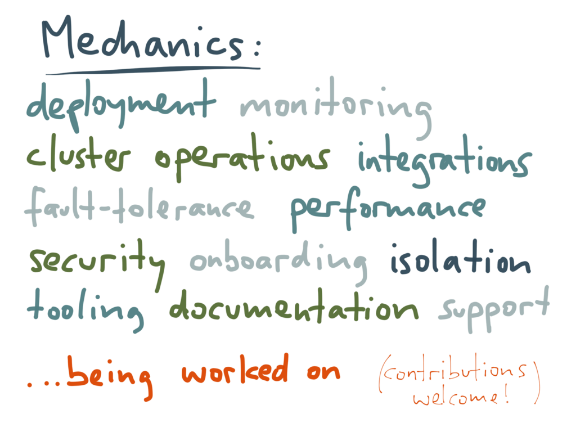 Mechanics:
deployment monitoring
cluster operations integrations
fault-tolerance performance
security onboarding isolation
tooling documentation support
...being worked on (contributions
welcome!)